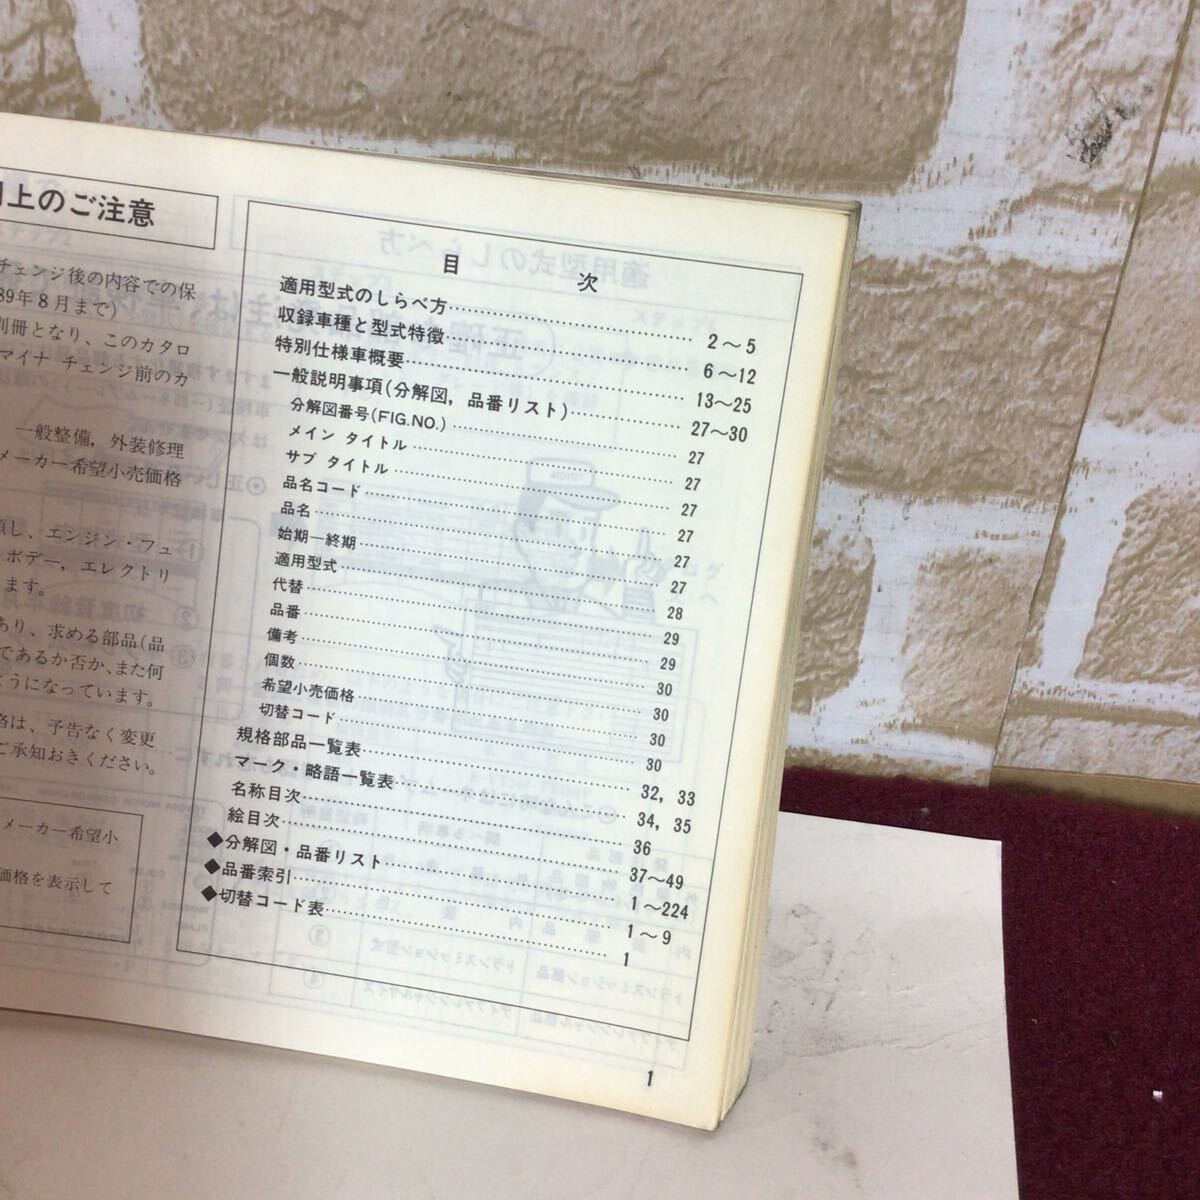 上のご注意
チェンジ後の内容での保
89年8月まで)
別冊となり、このカタロ
マイナ チェンジ前のカ
一般整備, 外装修理
メーカー希望小売価格
エンジン・フュ
ボデー, エレクトリ
ます。
あり、求める部品(品
であるか否か、また何
ようになっています。
格は、予告なく変更
ご承知おきください。
メーカー希望小
価格を表示して
目 次
適用型式のしらべ方 2〜5
収録車種と型式特徴 6〜12
特別仕様車概要 13〜25
一般説明事項(分解図, 品番リスト) 27〜30
分解図番号(FIG.NO.) 27
メイン タイトル 27
サブ タイトル 27
品名コード 27
品名 27
始期―終期 27
適用型式 28
代替 29
品番 29
備考 30
個数 30
希望小売価格 30
切替コード 30
規格部品一覧表 32, 33
マーク・略語一覧表 34, 35
名称目次 36
絵目次 37〜49
◆分解図・品番リスト 1〜224
◆品番索引 1〜9
◆切替コード表 1
1